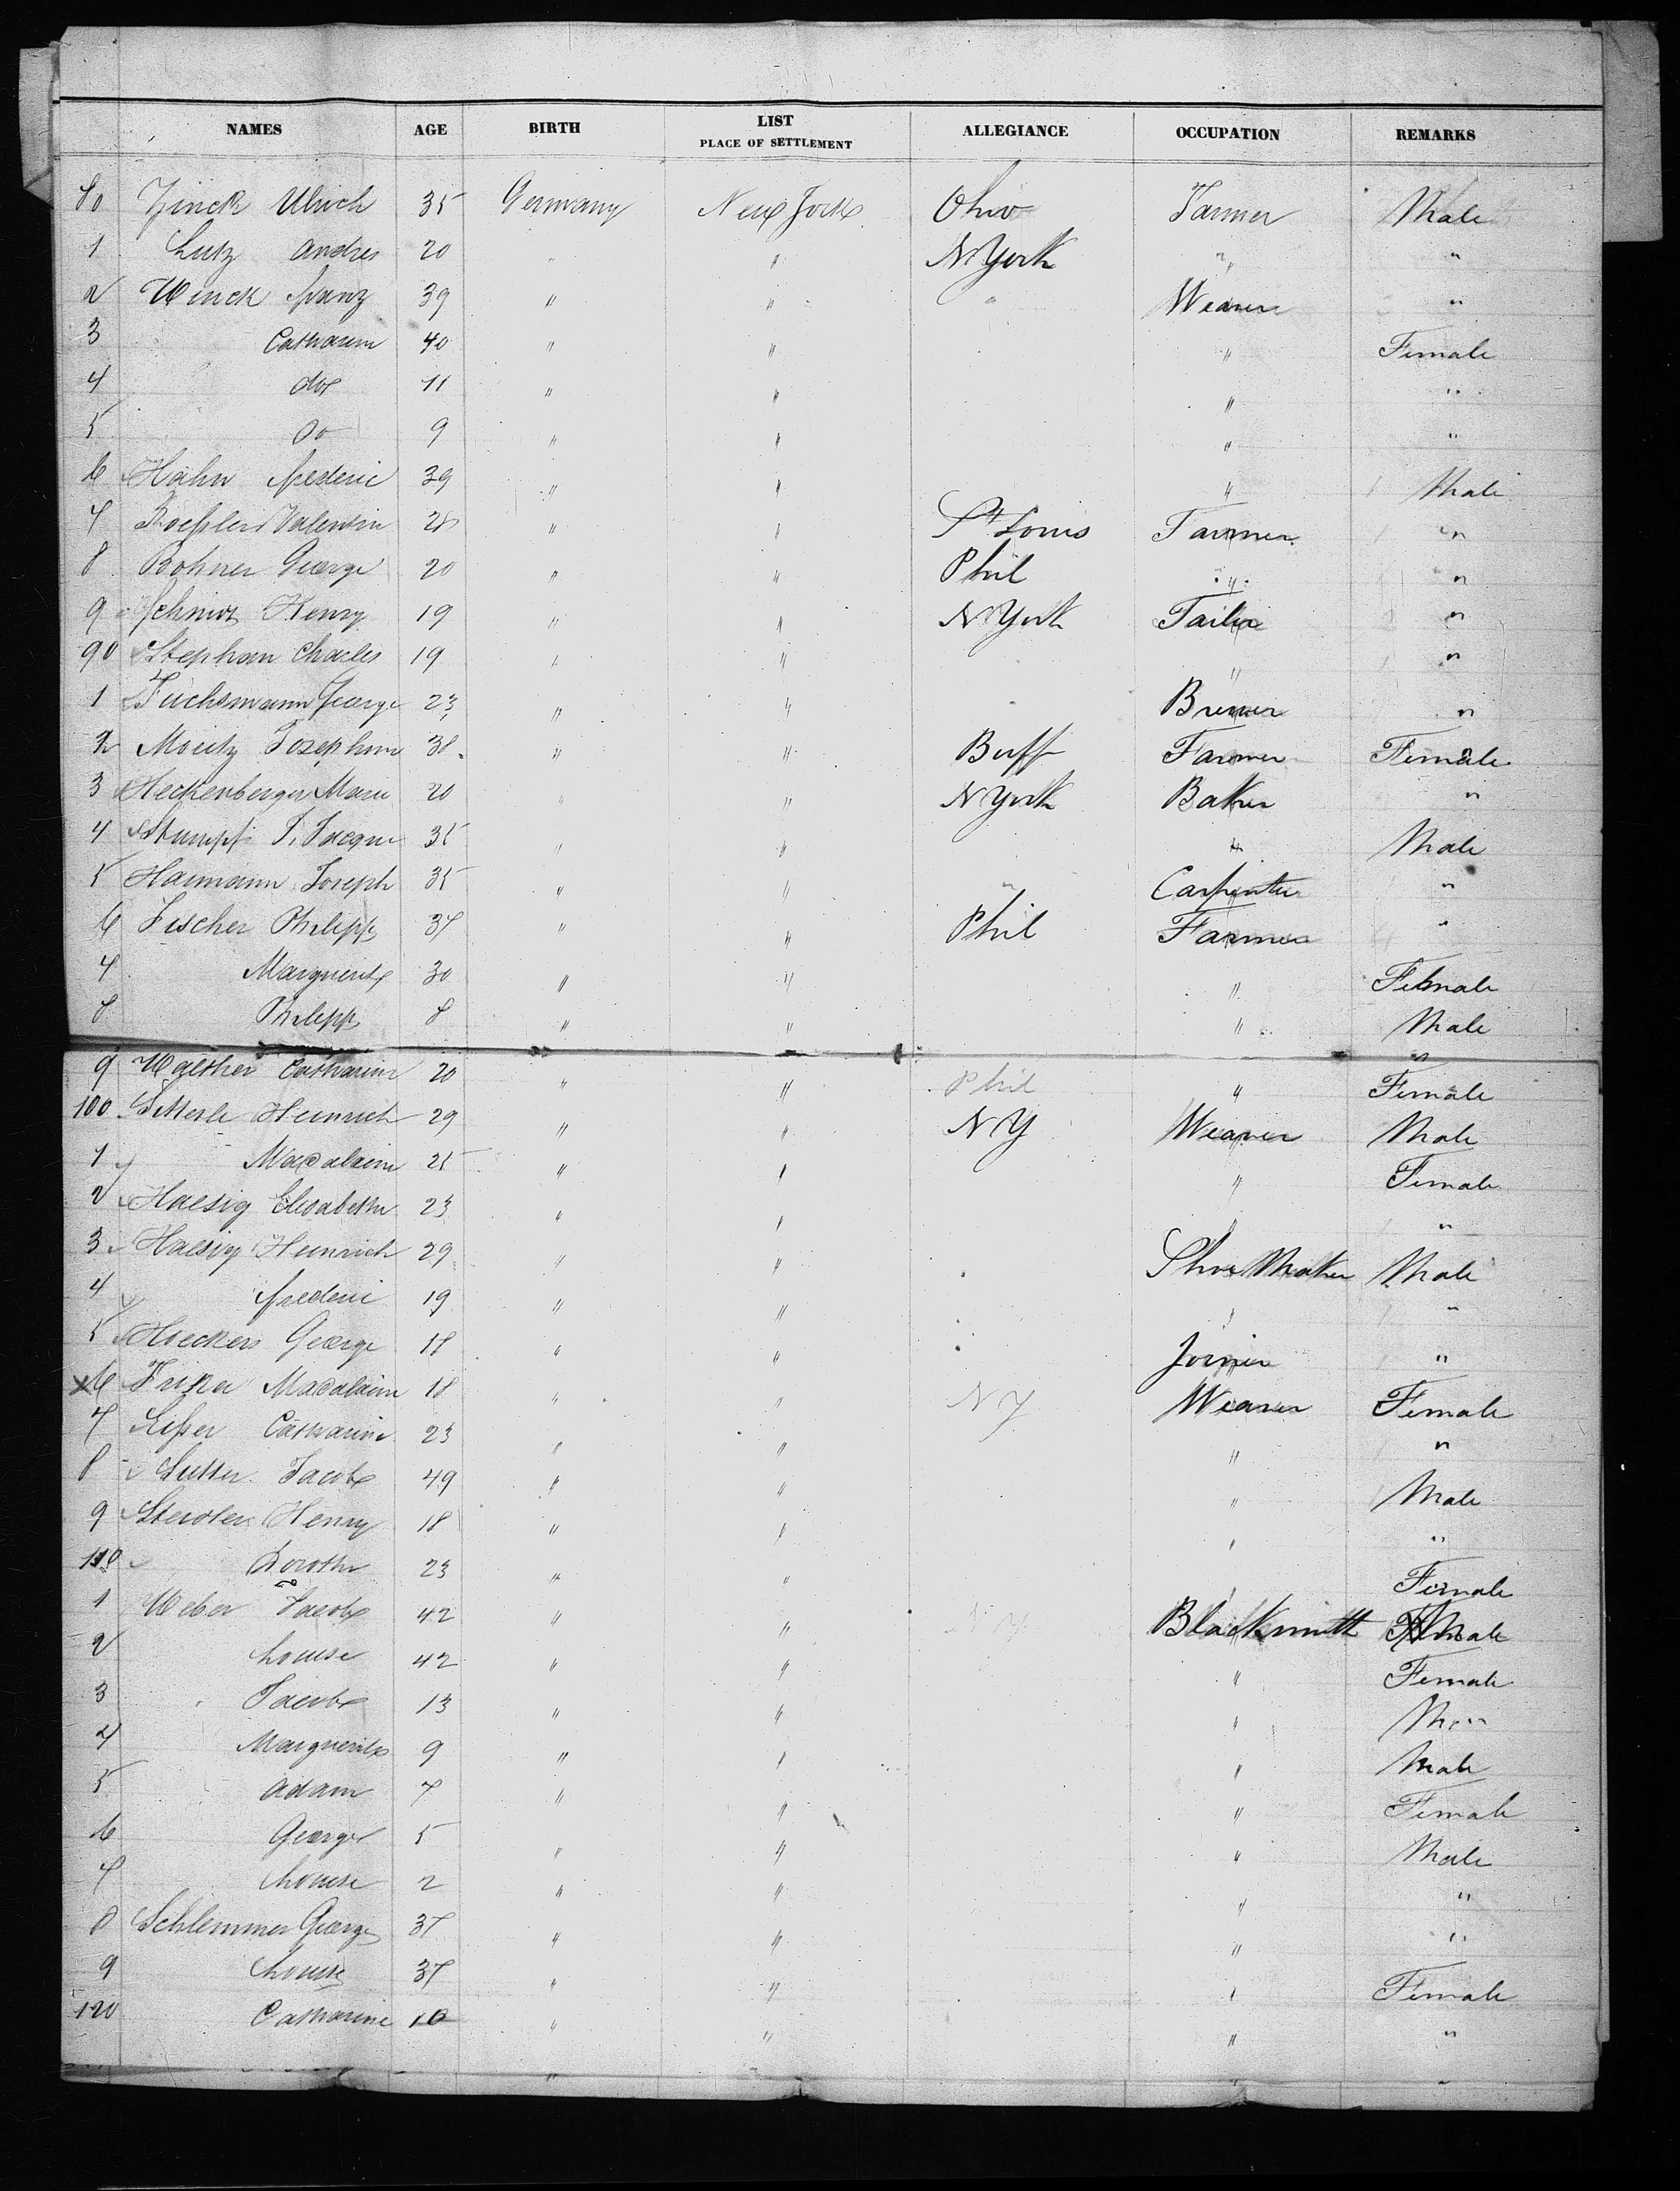 NAMES AGE BIRTH LIST PLACE OF SETTLEMENT ALLEGIANCE OCCUPATION REMARKS
80 Zinck Ulrich 35 Germany New York Ohio Farmer Male
1 Lutz Andres 20 " " N York " "
2 Winck franz 39 " " " Weaver "
3 Catharine 40 " " " Female
4 do 11 " " " "
5 do 9 " " " "
6 Hahn frederic 39 " " " Male
7 Valentin 28 " " St Louis Farmer "
8 Bohner George 20 " " Phil " "
9 Henry 19 " " N York Tailor "
90 Stephan Charles 19 " " " "
1 Fuchsmann George 23 " " Brewer "
2 Moritz Josephine 38 " " Buff Farmer Female
3 Heckenberger Marie 20 " " N York Baker "
4 Stumpf J. Jacque 35 " " " Male
5 Hamann Joseph 35 " " " Carpenter "
6 Fischer Philipp 37 " " Phil Farmer "
7 Marguerite 30 " " " Female
8 Philipp 8 " " " Male
9 Walther Catharine 20 " " Phil " Female
100 Heinrich 29 " " N Y Weaver Male
1 Madalaine 25 " " " Female
2 Haesig Elisabethe 23 " " " "
3 Haesig Heinrich 29 " " Shoe Maker Male
4 frederic 19 " " " "
5 Hoeckers George 18 " " Joiner "
x6 Madalaine 18 " " N Y Weaver Female
7 Catharine 23 " " " "
8 Sutter Jacob 49 " " " Male
9 Henry 18 " " " "
110 Dorothe 23 " " " Female
1 Weber Jacob 42 " " N Y Blacksmith Male
2 Louise 42 " " " Female
3 Jacob 13 " " "
4 Marguerite 9 " " " Male
5 Adam 7 " " " Female
6 George 5 " " " Male
7 Louise 2 " " " "
8 Schlemmer George 37 " " " "
9 Louise 37 " " " Female
120 Catharine 10 " " " "